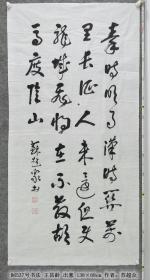 秦时明月汉时关万
里长征人未还但使
龙城飞将在不教胡
马度阴山
苏超众书
96537号书法 王昌龄 出塞 138×69cm 作者:苏超众